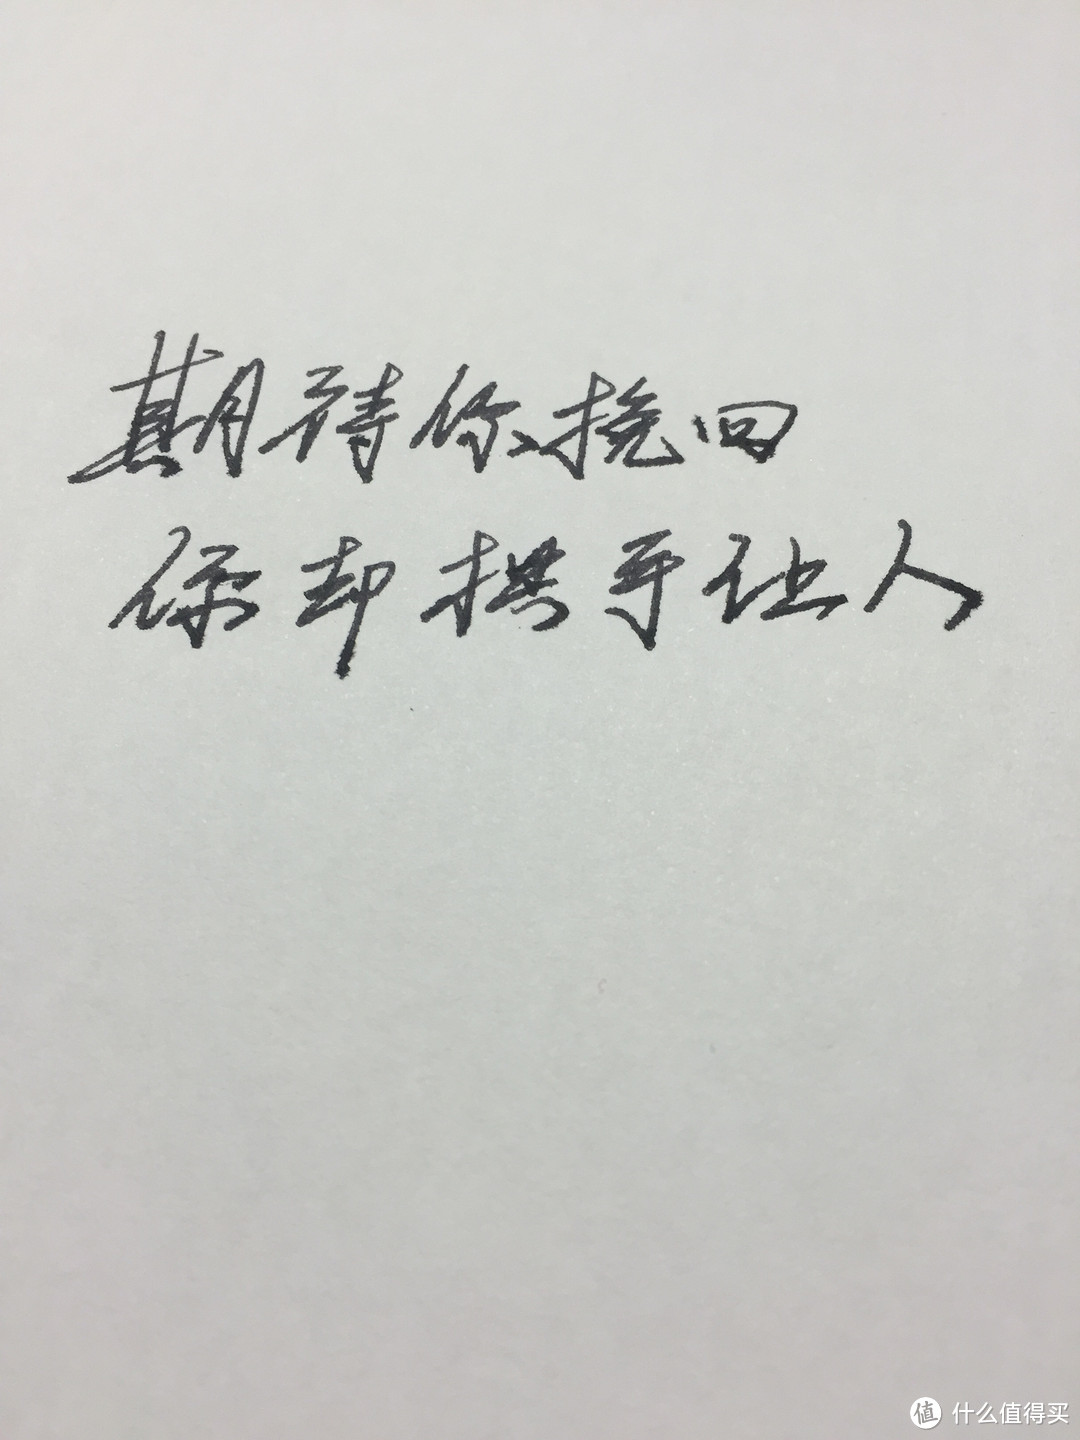 期待你挽回
你却拱手让人
值 什么值得买